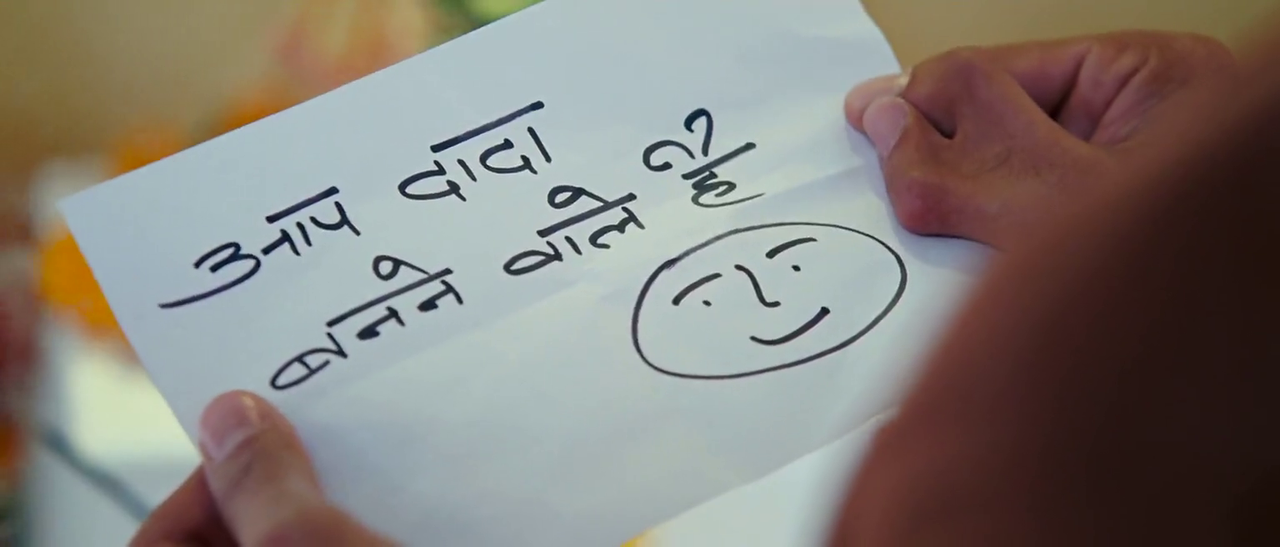 आप दादा
बनने वाले हैं